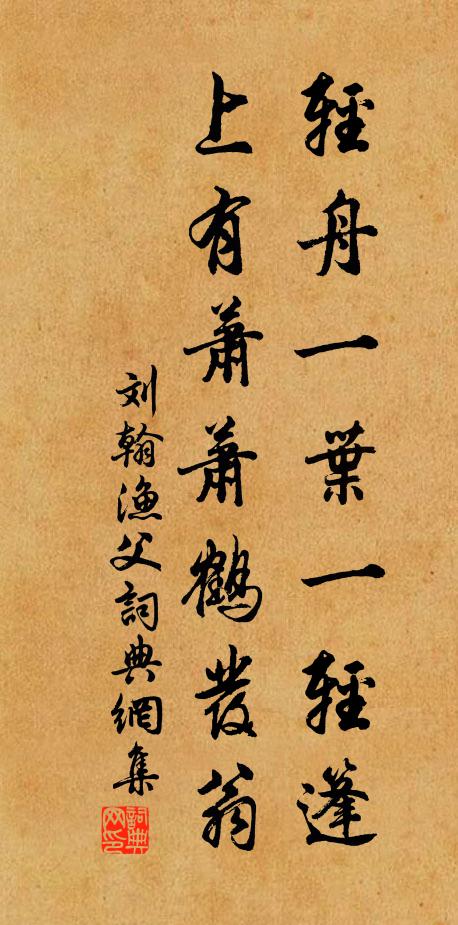 輕舟一葉一輕篷
上有蕭蕭鶴發翁
刘翰漁父詞典網集
詞典网印